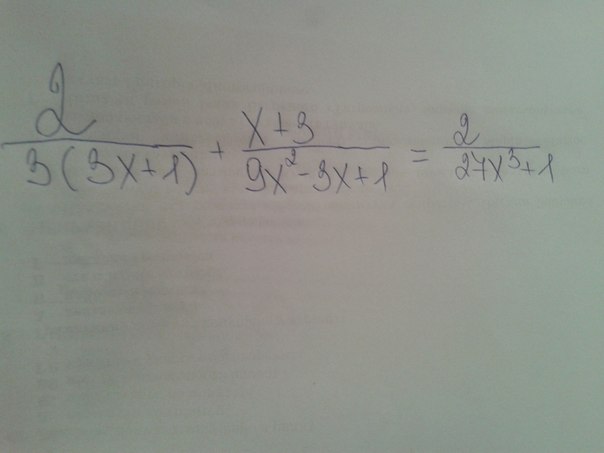 2/(3(3x+1)) + (x+3)/(9x²-3x+1) = 2/(27x³+1)